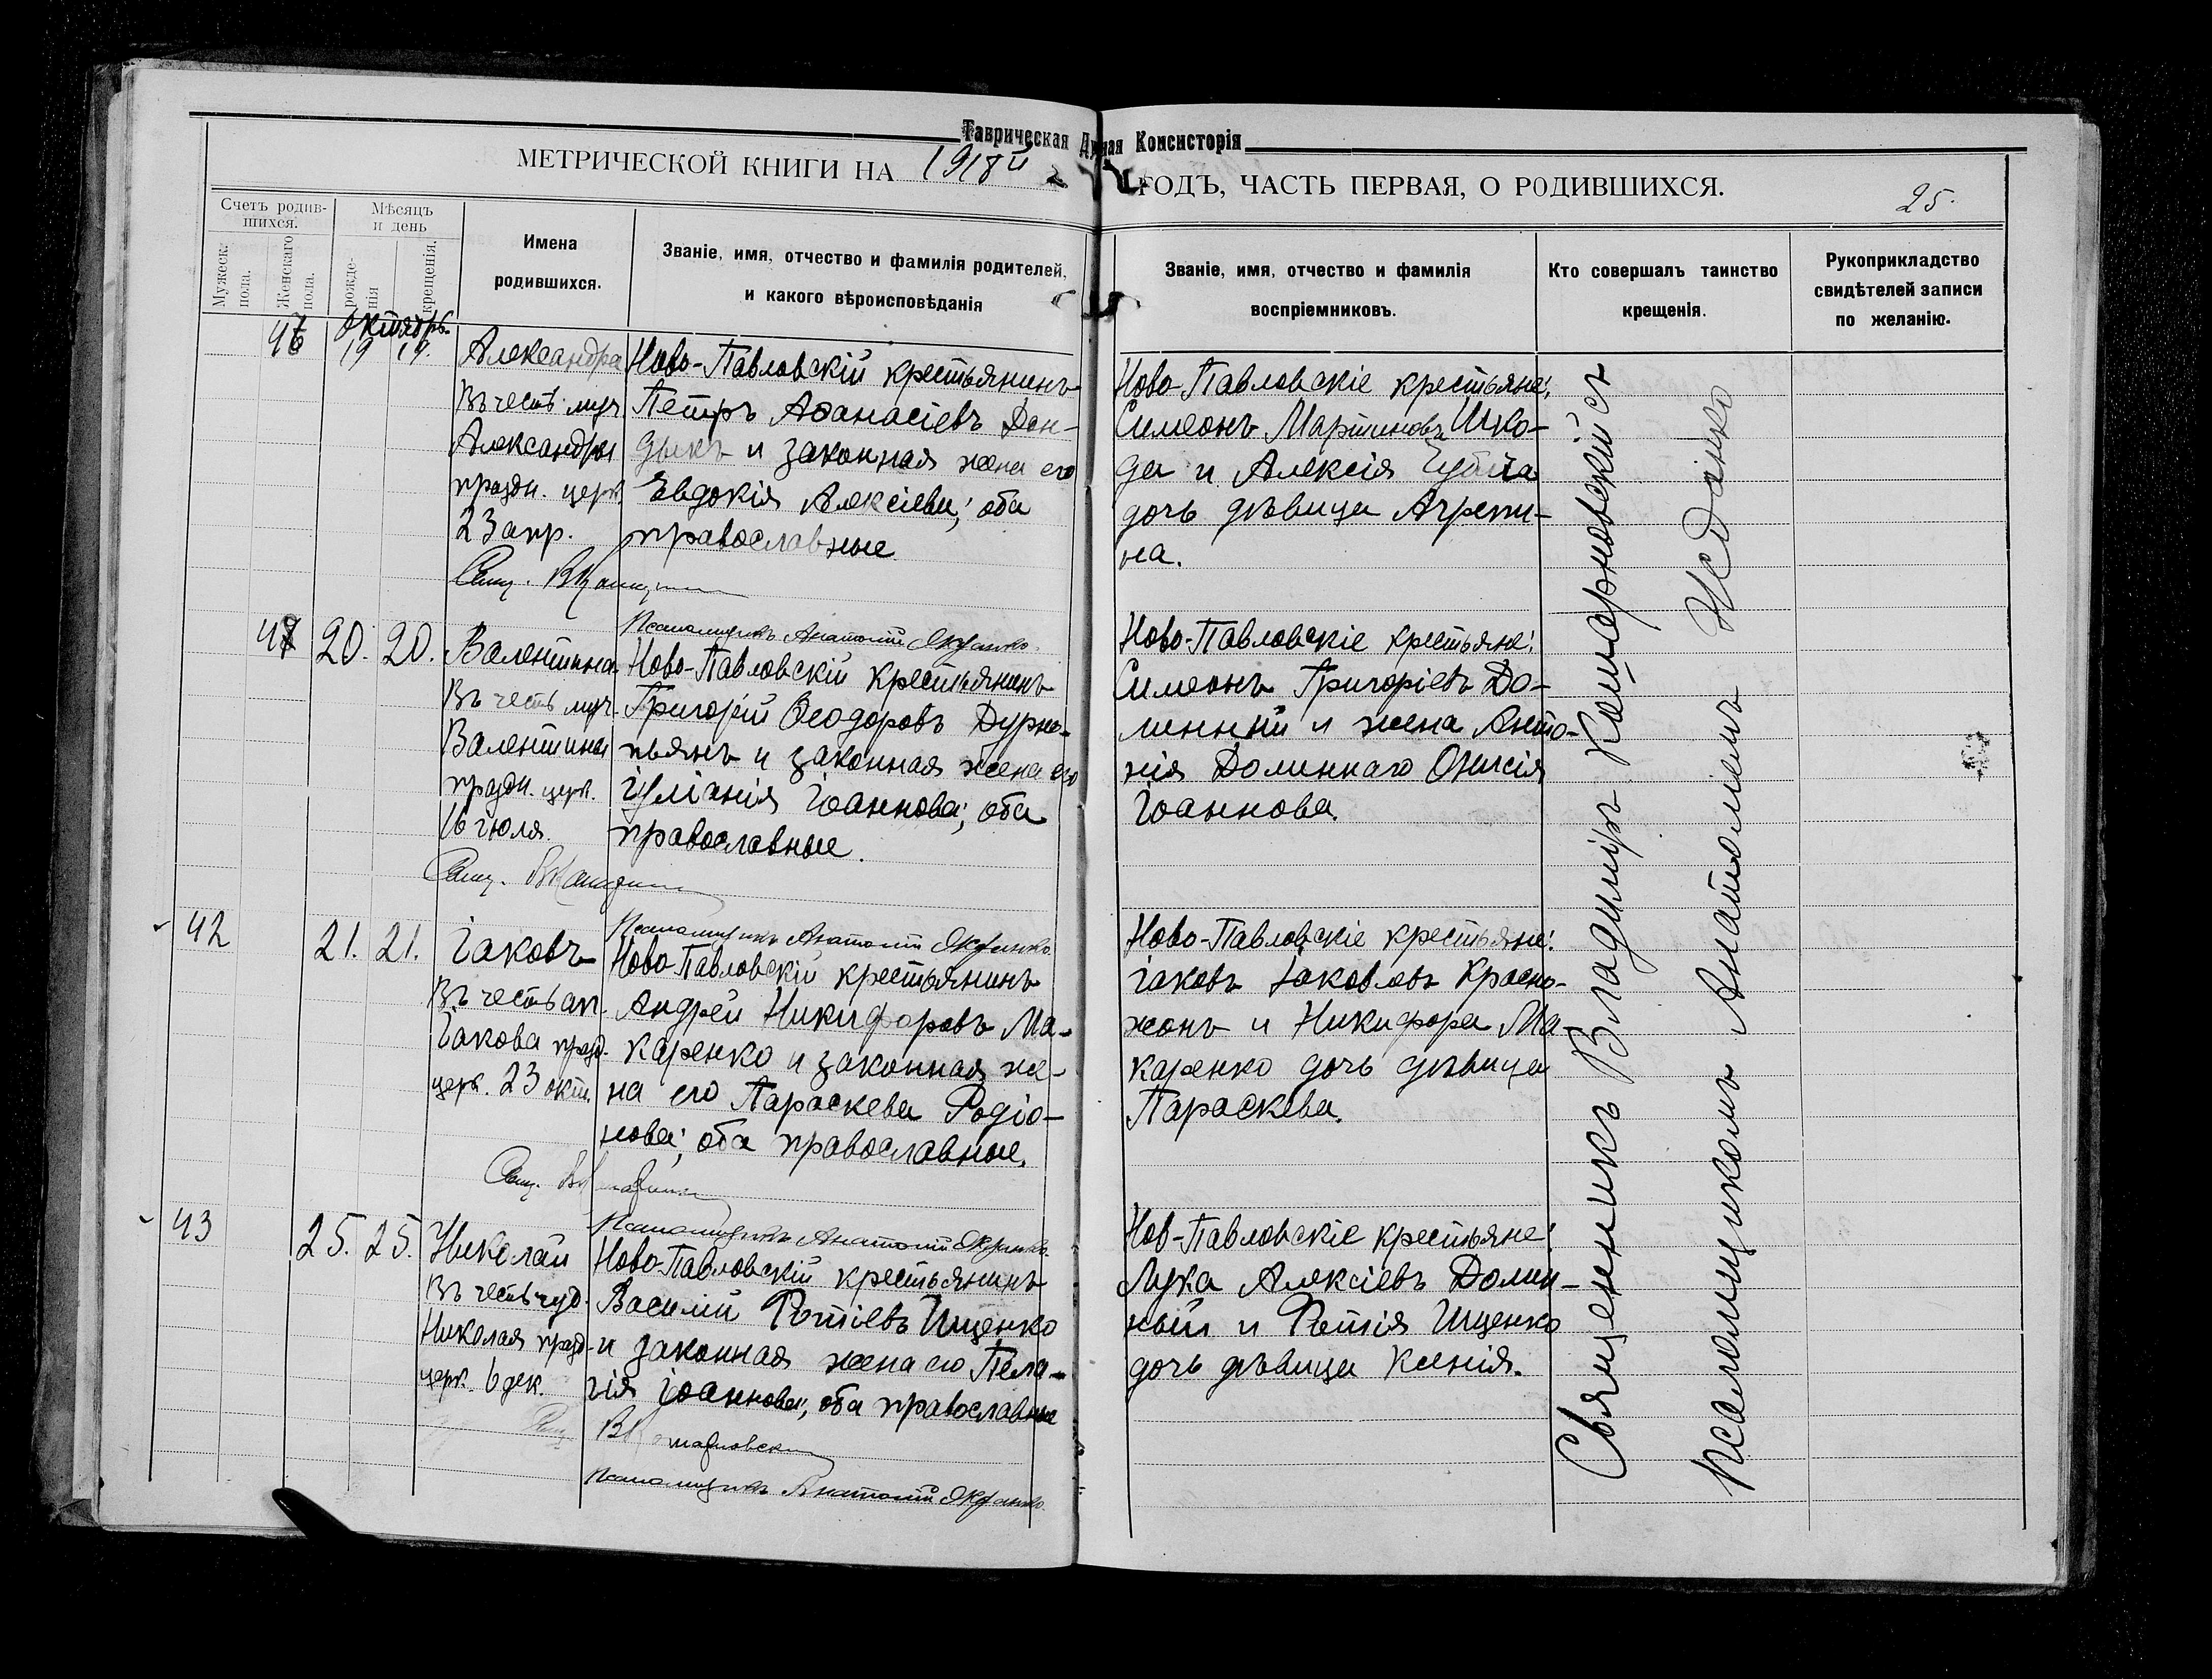 Таврическая Духовная Консисторія
МЕТРИЧЕСКОЙ КНИГИ НА 1918й ГОДЪ, ЧАСТЬ ПЕРВАЯ, О РОДИВШИХСЯ.
25.
Счетъ родив-
шихся.
Мужеск.
пола.
Женскаго
пола.
Мѣсяцъ
и день
рожде-
нія
крещенія.
Имена
родившихся.
Званіе, имя, отчество и фамилія родителей,
и какого вѣроисповѣданія
Званіе, имя, отчество и фамилія
воспріемниковъ.
Кто совершалъ таинство
крещенія.
Рукоприкладство
свидѣтелей записи
по желанію.
Октябрь.
46 19 19.
Александра
Въ честь муч.
Александры
праздн. церк.
23 апр.
Ново-Павловскій крестьянинъ
Петръ Аѳанасіевъ Дон-
дыкъ и законная жена его
Евдокія Алексіева; оба
православные.
Ново-Павловскіе крестьяне:
Симеонъ Мартиновъ Шко-
да и Алексія
дочь дѣвица Агрепи-
на.
Свящ.
Псаломщикъ Анатолій
47 20. 20.
Валентина
Въ честь муч.
Валентины
праздн. церк.
16 іюля.
Ново-Павловскій крестьянинъ
Григорій Ѳеодоровъ Дурно-
пьянъ и законная жена его
Іуліанія Іоаннова; оба
православные.
Ново-Павловскіе крестьяне:
Симеонъ Григоріевъ До-
линный и жена Анто-
нія Долиннаго Онисія
Іоаннова.
Свящ.
Псаломщикъ Анатолій
42 21. 21.
Іаковъ
Въ честь ап.
Іакова празд.
церк. 23 окт.
Ново-Павловскій крестьянинъ
Андрей Никифоровъ Ма-
каренко и законная же-
на его Параскева Родіо-
нова; оба православные.
Ново-Павловскіе крестьяне:
Іаковъ Іаковлевъ Красно-
жонъ и Никифора Ма-
каренко дочь дѣвица
Параскева.
Свящ.
Псаломщикъ Анатолій
43 25. 25.
Николай
Въ честь чуд.
Николая празд.
церк. 6 дек.
Ново-Павловскій крестьянинъ
Василій Фотіевъ Ищенко
и законная жена его Пела-
гія Іоаннова; оба православные
Нов-Павловскіе крестьяне:
Лука Алексіевъ Долин-
ный и Фотія Ищенко
дочь дѣвица Ксенія.
Псаломщикъ Анатолій
Священникъ Владиміръ Комарновскій съ
псаломщикомъ Анатоліемъ